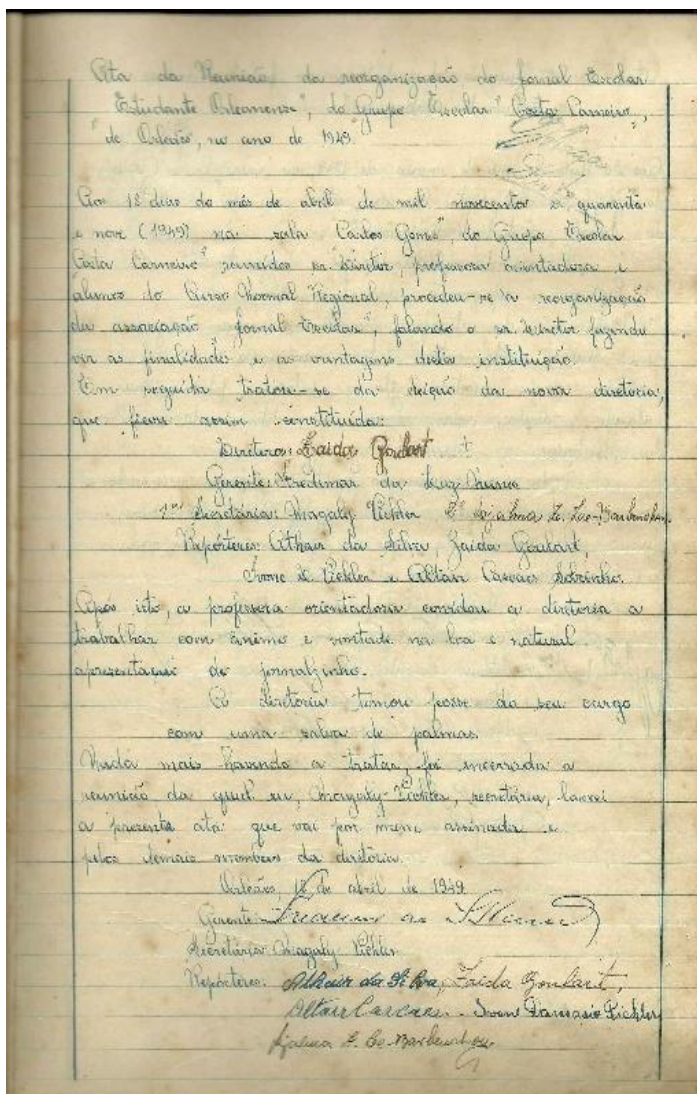 Ata da Reunião da reorganização do Jornal Escolar
"Estudante Orleanense", do Grupo Escolar "Costa Carneiro",
de Orleães, no ano de 1949.
Aos 18 dias do mês de abril de mil novecentos e quarenta
e nove (1949) na sala "Carlos Gomes", do Grupo Escolar
"Costa Carneiro" reunidos sr. Diretor, professora orientadora e
alunos do Curso Normal Regional, procedeu-se a reorganização
da associação "Jornal Escolar", falando o sr. Diretor fazendo
ver as finalidades e as vantagens desta instituição.
Em seguida tratou-se da eleição da nova diretoria,
que ficou assim constituida:
Diretora: Zaida Goulart
Gerente: da Luz
1ª Secretária: Magaly Pichler 2º Djalma
Repórteres: Athair da Silva, Zaida Goulart,
Ivone D. Pichler e Altair Cascaes Sobrinho.
Após isto, a professora orientadora convidou a diretoria a
trabalhar com ânimo e vontade na boa e natural
apresentação do jornalzinho.
A diretoria tomou posse do seu cargo
com uma salva de palmas.
Nada mais havendo a tratar, foi encerrada a
reunião da qual eu, Magaly Pichler, secretária, lavrei
a presente ata que vai por mim assinada e
pelos demais membros da diretoria.
Orleães, 18 de abril de 1949
Gerente:
Secretária: Magaly Pichler
Repórteres: Athair da Silva, Zaida Goulart,
Altair Cascaes. Ivone Damasio Pichler
Djalma